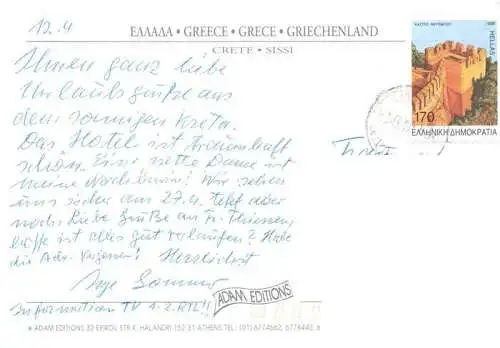 12.4
ΕΛΛΑΔΑ • GREECE • GRECE • GRIECHENLAND
CRETE - SISSI
ΚΑΣΤΡΟ
HELLAS
170
ΕΛΛΗΝΙΚΗ ΔΗΜΟΚΡΑΤΙΑ
Ihnen ganz liebe
Urlaubsgrüße aus
dem sonnigen Kreta.
Das Hotel ist traumhaft
schön. Eine nette Dame ist
meine Nachbarin! Wir sehen
uns sicher am 27.4.
noch Liebe Grüße an Fr. Thiessen,
hoffe ist alles gut verlaufen? Habe
die Adr. vergessen! Herzlichst
Inge Sommer
ADAM EDITIONS
Information TV 4.2. RTL!!
® ADAM EDITIONS 32 EPIROU STR K. HALANDRI 152 31 ATHENS TEL.: (01) 6774662, 6778440, 6